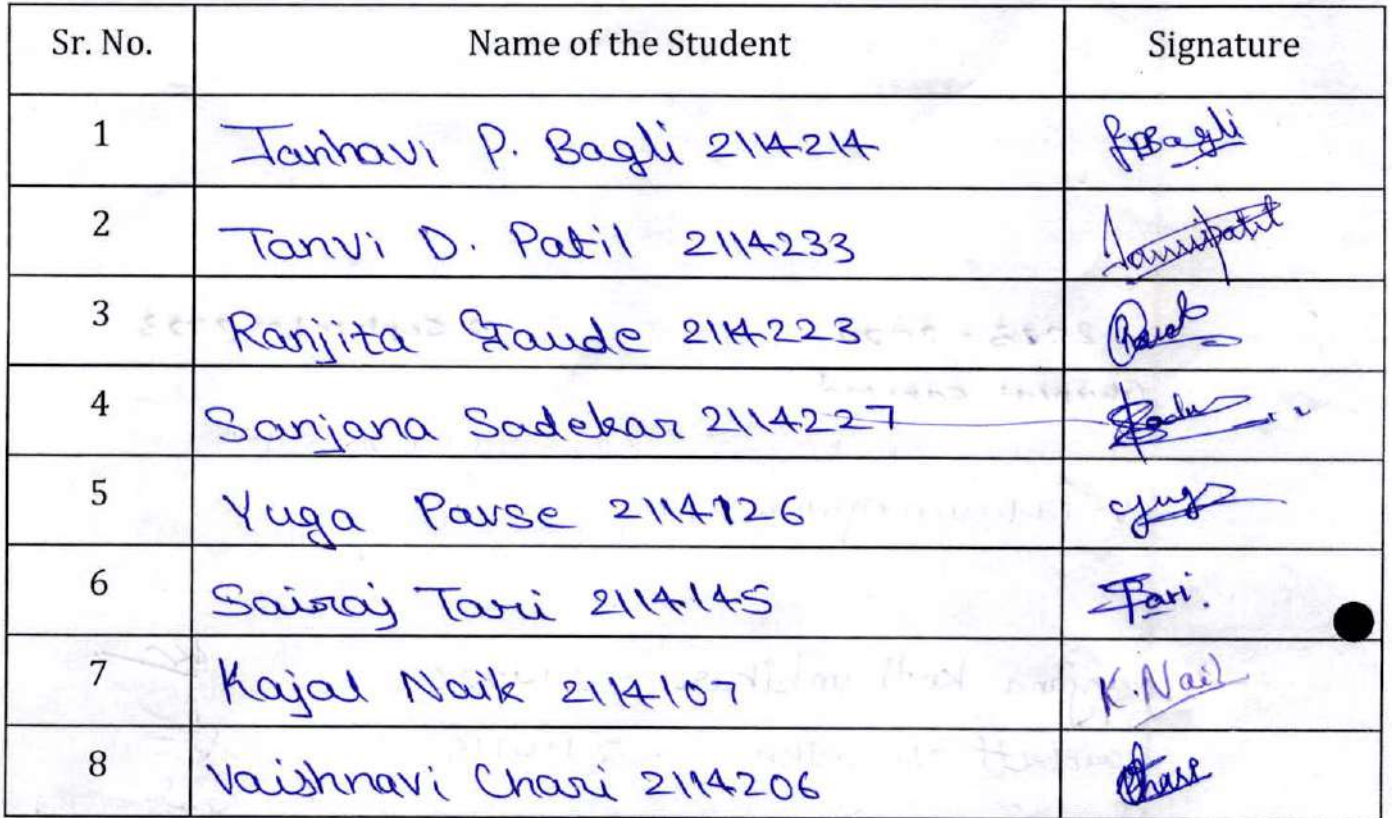 Sr. No. Name of the Student Signature
1 Janhavi P. Bagli 2114214 JPBagli
2 Tanvi D. Patil 2114233 Tanvipatil
3 Ranjita Gaude 2114223
4 Sanjana Sadekar 2114227
5 Yuga Parse 2114126
6 Sairaj Tari 2114145 Tari.
7 Kajal Naik 2114107 K.Naik
8 Vaishnavi Chari 2114206